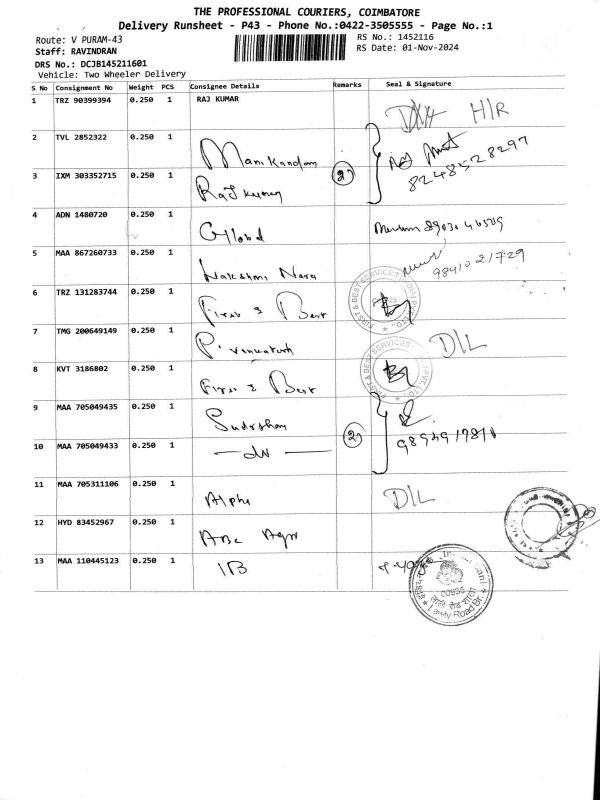 THE PROFESSIONAL COURIERS, COIMBATORE
Delivery Runsheet - P43 - Phone No.:0422-3505555 - Page No.:1
Route: V PURAM-43
RS No.: 1452116
Staff: RAVINDRAN
RS Date: 01-Nov-2024
DRS No.: DCJB145211601
Vehicle: Two Wheeler Delivery
S No Consignment No Weight PCS Consignee Details Remarks Seal & Signature
1 TRZ 90399394 0.250 1 RAJ KUMAR
2 TVL 2852322 0.250 1 Manikandan
3 IXM 303352715 0.250 1 Raj kumar 2 8248528297
4 ADN 1480720 0.250 1 Global
5 MAA 867260733 0.250 1 Lakshmi Nara 9841021729
6 TRZ 131283744 0.250 1 First & Best
FIRST & BEST SERVICES
7 TMG 200649149 0.250 1 P. Venkatesh D/L
8 KVT 3186802 0.250 1 First & Best
FIRST & BEST SERVICES PVT. LTD.
9 MAA 705049435 0.250 1 Sudarshan
10 MAA 705049433 0.250 1 2
11 MAA 705311106 0.250 1 Alpha D/L
12 HYD 83452967 0.250 1 ABC Agro
13 MAA 110445123 0.250 1 IB
00936
Road Br.